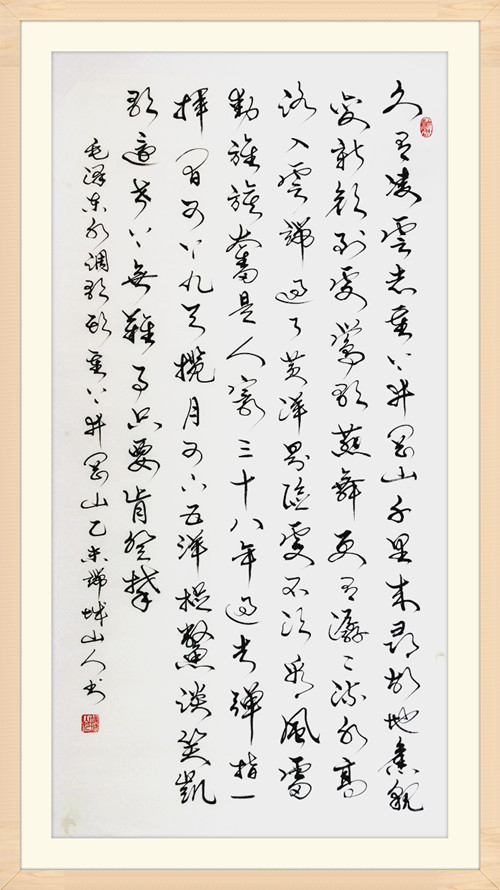 久有凌雲志重上井岡山千里來尋故地舊貌
變新顏到處鶯歌燕舞更有潺〻流水高
路入雲端過了黃洋界險處不須看風雷
動旌旗奮是人寰三十八年過去彈指一
揮間可上九天攬月可下五洋捉鱉談笑凱
歌還世上無難事只要肯登攀
毛澤東水調歌頭重上井岡山乙未端城山人書